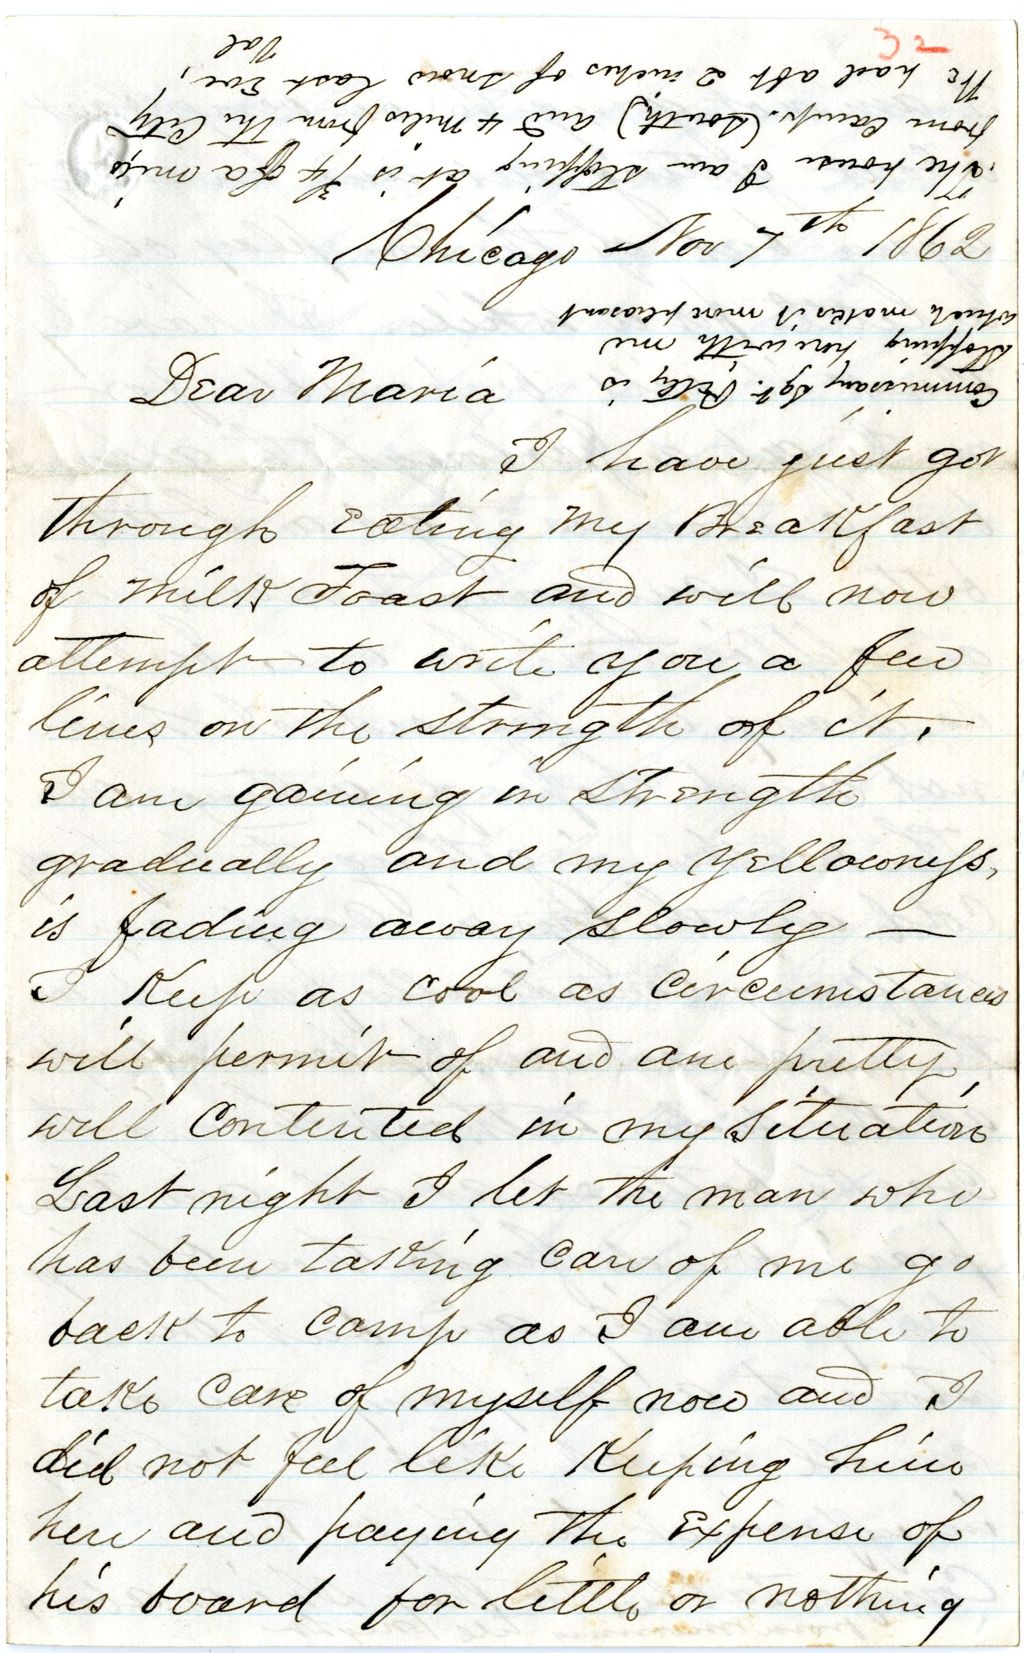 32
The house I am stopping at is 3/4 of a mile
from Camp. (South) and 4 miles from the City
We had abt 2 inches of snow last Eve,
Val
Chicago Nov 7th 1862
Commissary Sgt. is
stopping here with me
which makes it more pleasant
Dear Maria
I have just got
through eating my Breakfast
of Milk Toast and will now
attempt to write you a few
lines on the strength of it.
I am gaining in strength
gradually and my yellowness,
is fading away slowly —
I Keep as cool as circumstances
will permit of and am pretty
well contented in my situation
Last night I let the man who
has been taking care of me go
back to camp as I am able to
take care of myself now and I
did not feel like Keeping him
here and paying the expense of
his board for little or nothing